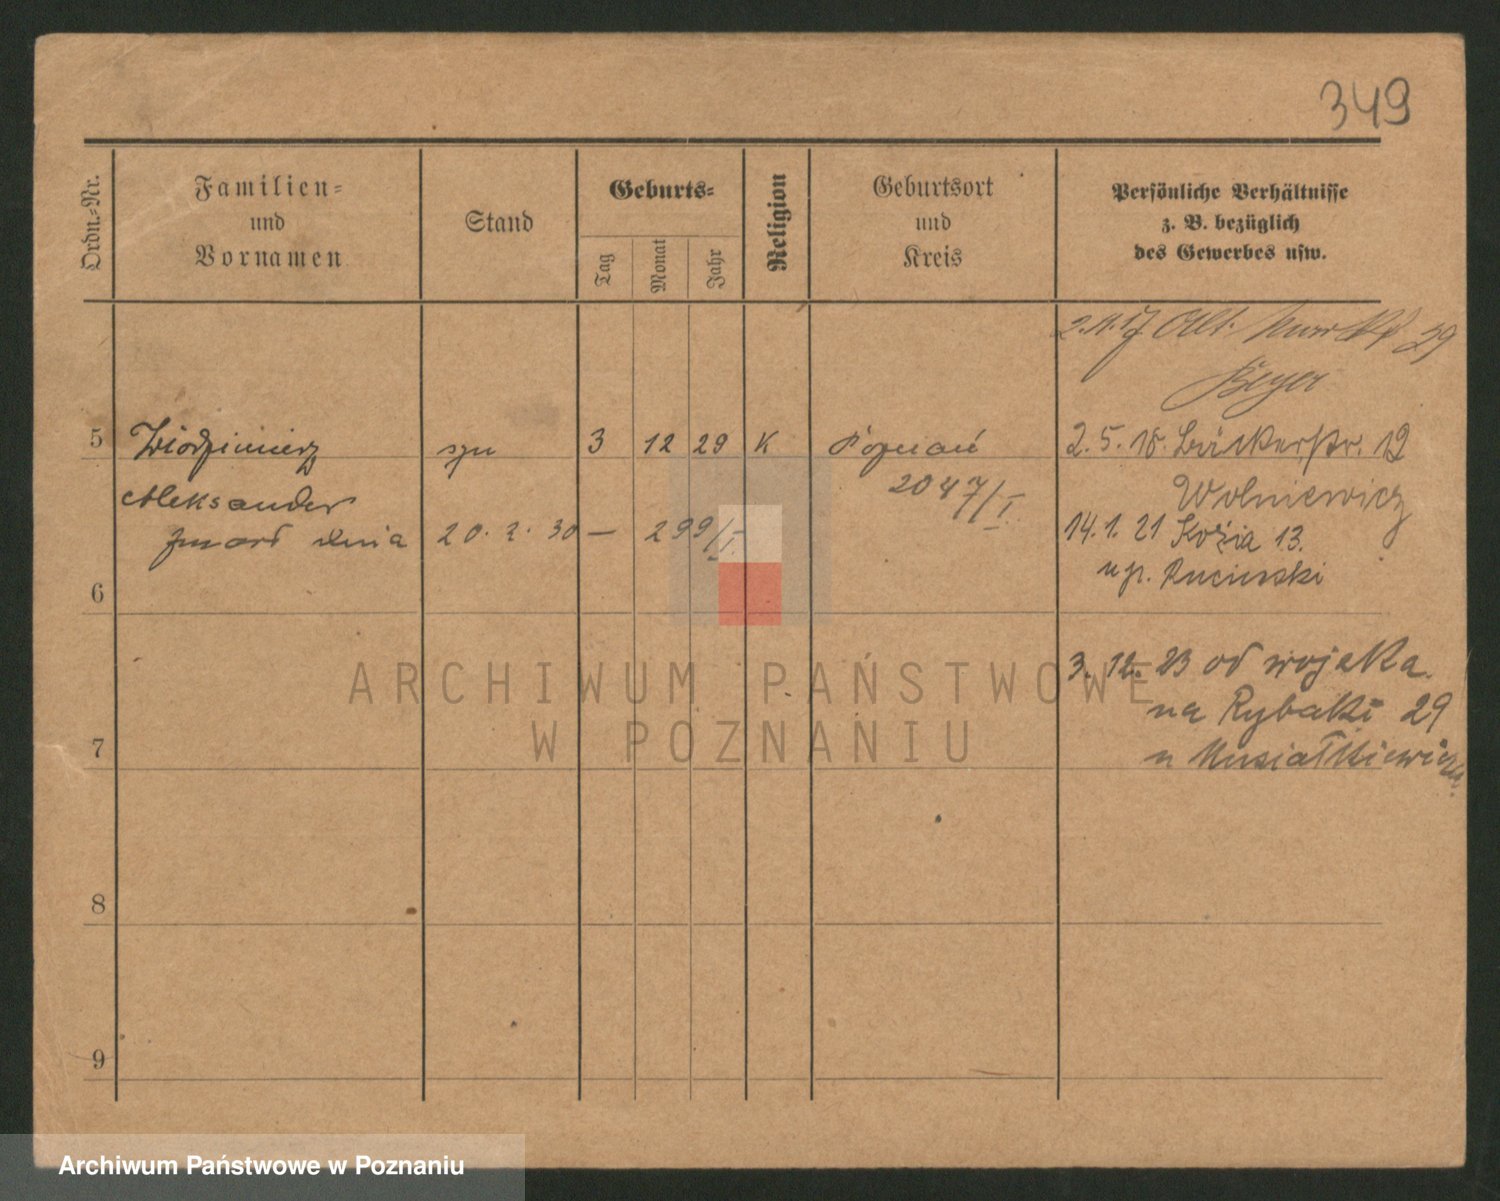 349
Ordn.-Nr.
Familien-
und
Vornamen
Stand
Geburts-
Tag
Monat
Jahr
Religion
Geburtsort
und
Kreis
Persönliche Verhältnisse
z. B. bezüglich
des Gewerbes usw.
2.11.17 Alt. Markt 29
Beyer
5 Włodzimierz syn 3 12 29 K Poznań
2.5.18. Bäckerstr. 19
Aleksander
2047/I.
Wolniewicz
zmarł dnia 20. 2. 30 — 299/I.
14.1.21 Kozia 13.
u p. Rucinski
6
3.12.23 od wojska
na Rybaki 29
u Musiałkiewicza.
7
8
9
ARCHIWUM PAŃSTWOWE
W POZNANIU
Archiwum Państwowe w Poznaniu